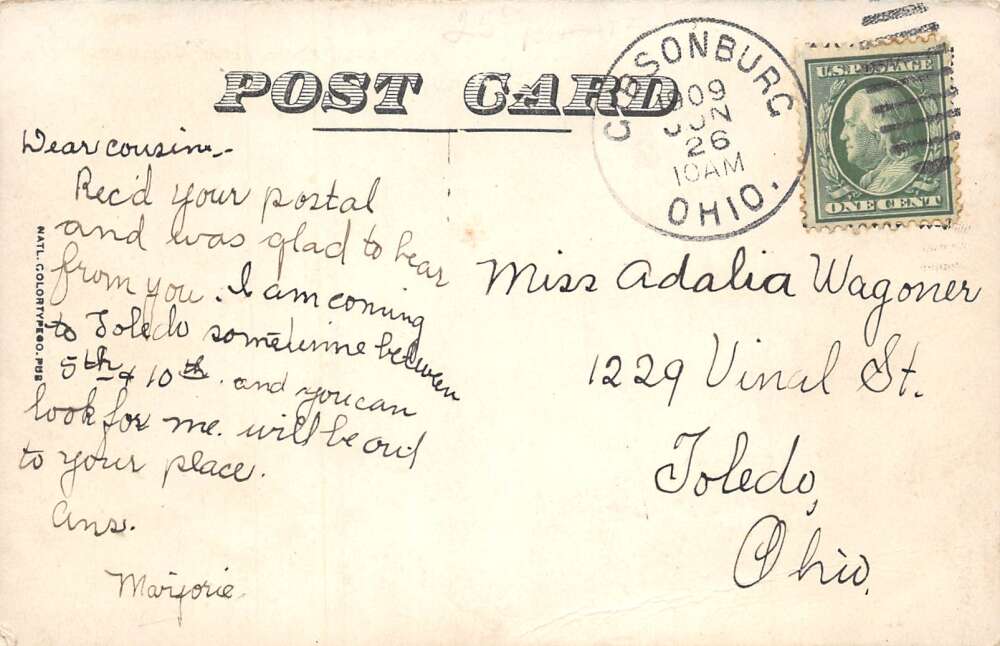 POST CARD
GIBSONBURG
1909
JUN
26
10AM
OHIO.
U.S. POSTAGE
ONE CENT
Dear cousin,-
Rec'd your postal
and was glad to hear
from you. I am coming
to Toledo sometime between
5th & 10th. and you can
look for me. will be out
to your place.
Ans.
Marjorie.
NATL. COLORTYPE CO. PUB
Miss Adalia Wagoner
1229 Vinal St.
Toledo,
Ohio.